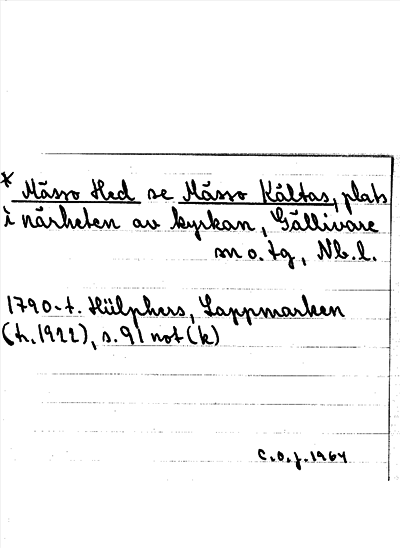 * Mässo Hed se Mässo Kältas, plats
i närheten av kyrkan, Gällivare
sn o. tg, Nb.l.
1790-t. Hülphers, Lappmarken
(tr. 1922), s. 91 not (k)
C.O.J. 1964